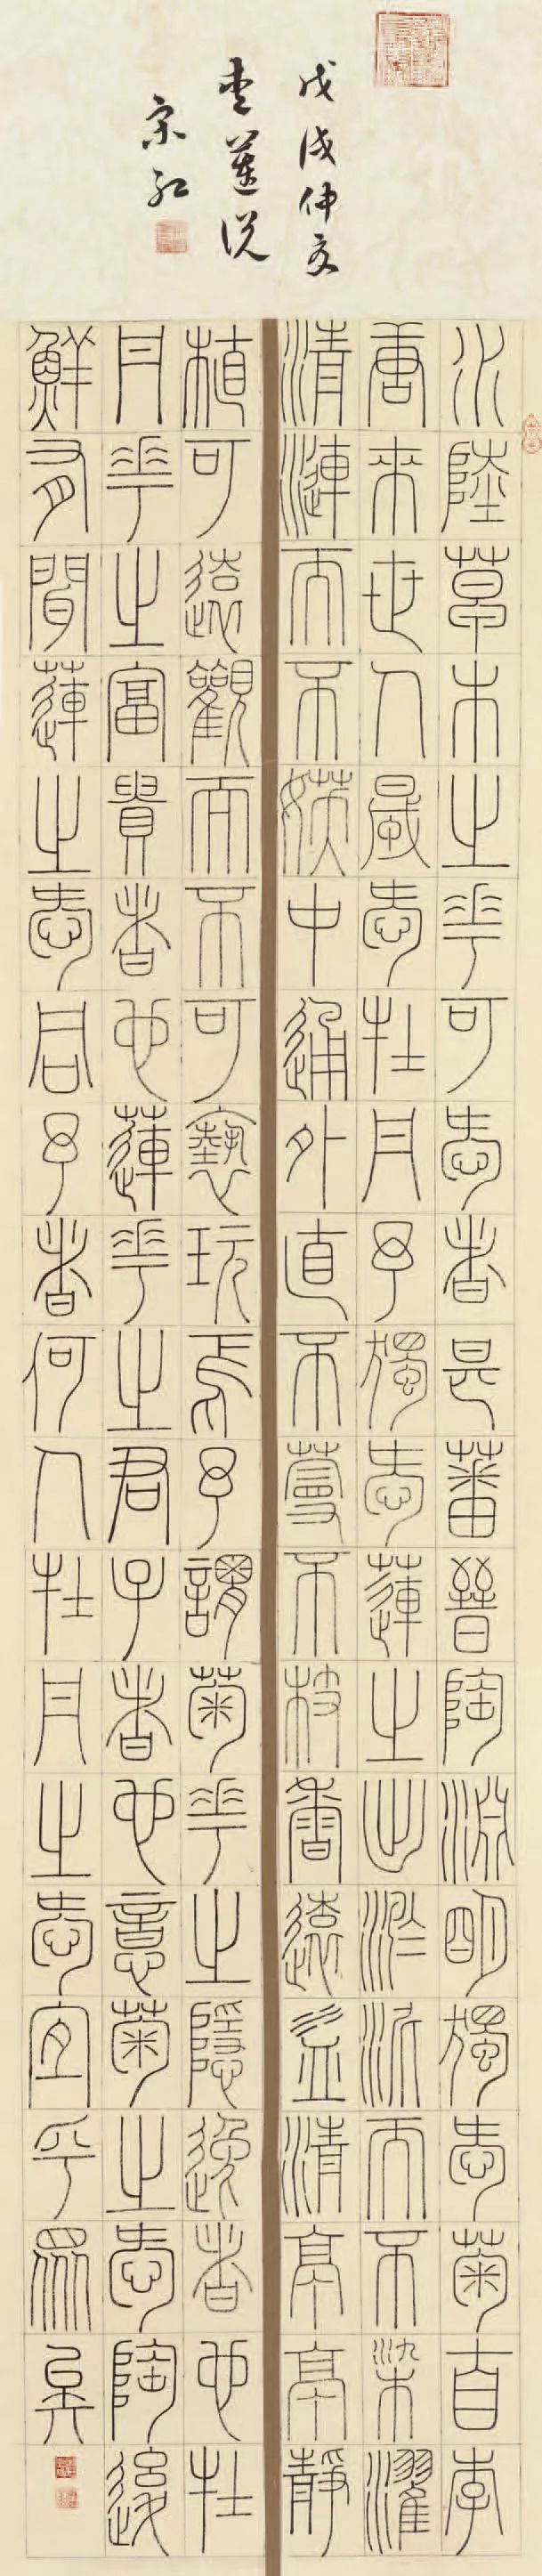 戊戌仲夏
愛蓮说
水陸草木之華可愛者甚蕃晉陶淵明獨愛菊自李
唐來世人晟愛牡丹予獨愛蓮之出淤泥而不染濯
清漣而不妖中通外直不蔓不枝香遠益清亭亭靜
植可遠觀而不可褻玩焉予謂菊華之隱逸者也牡
丹華之富貴者也蓮華之君子者也噫菊之愛陶後
鮮有聞蓮之愛同予者何人牡丹之愛宜乎眾矣